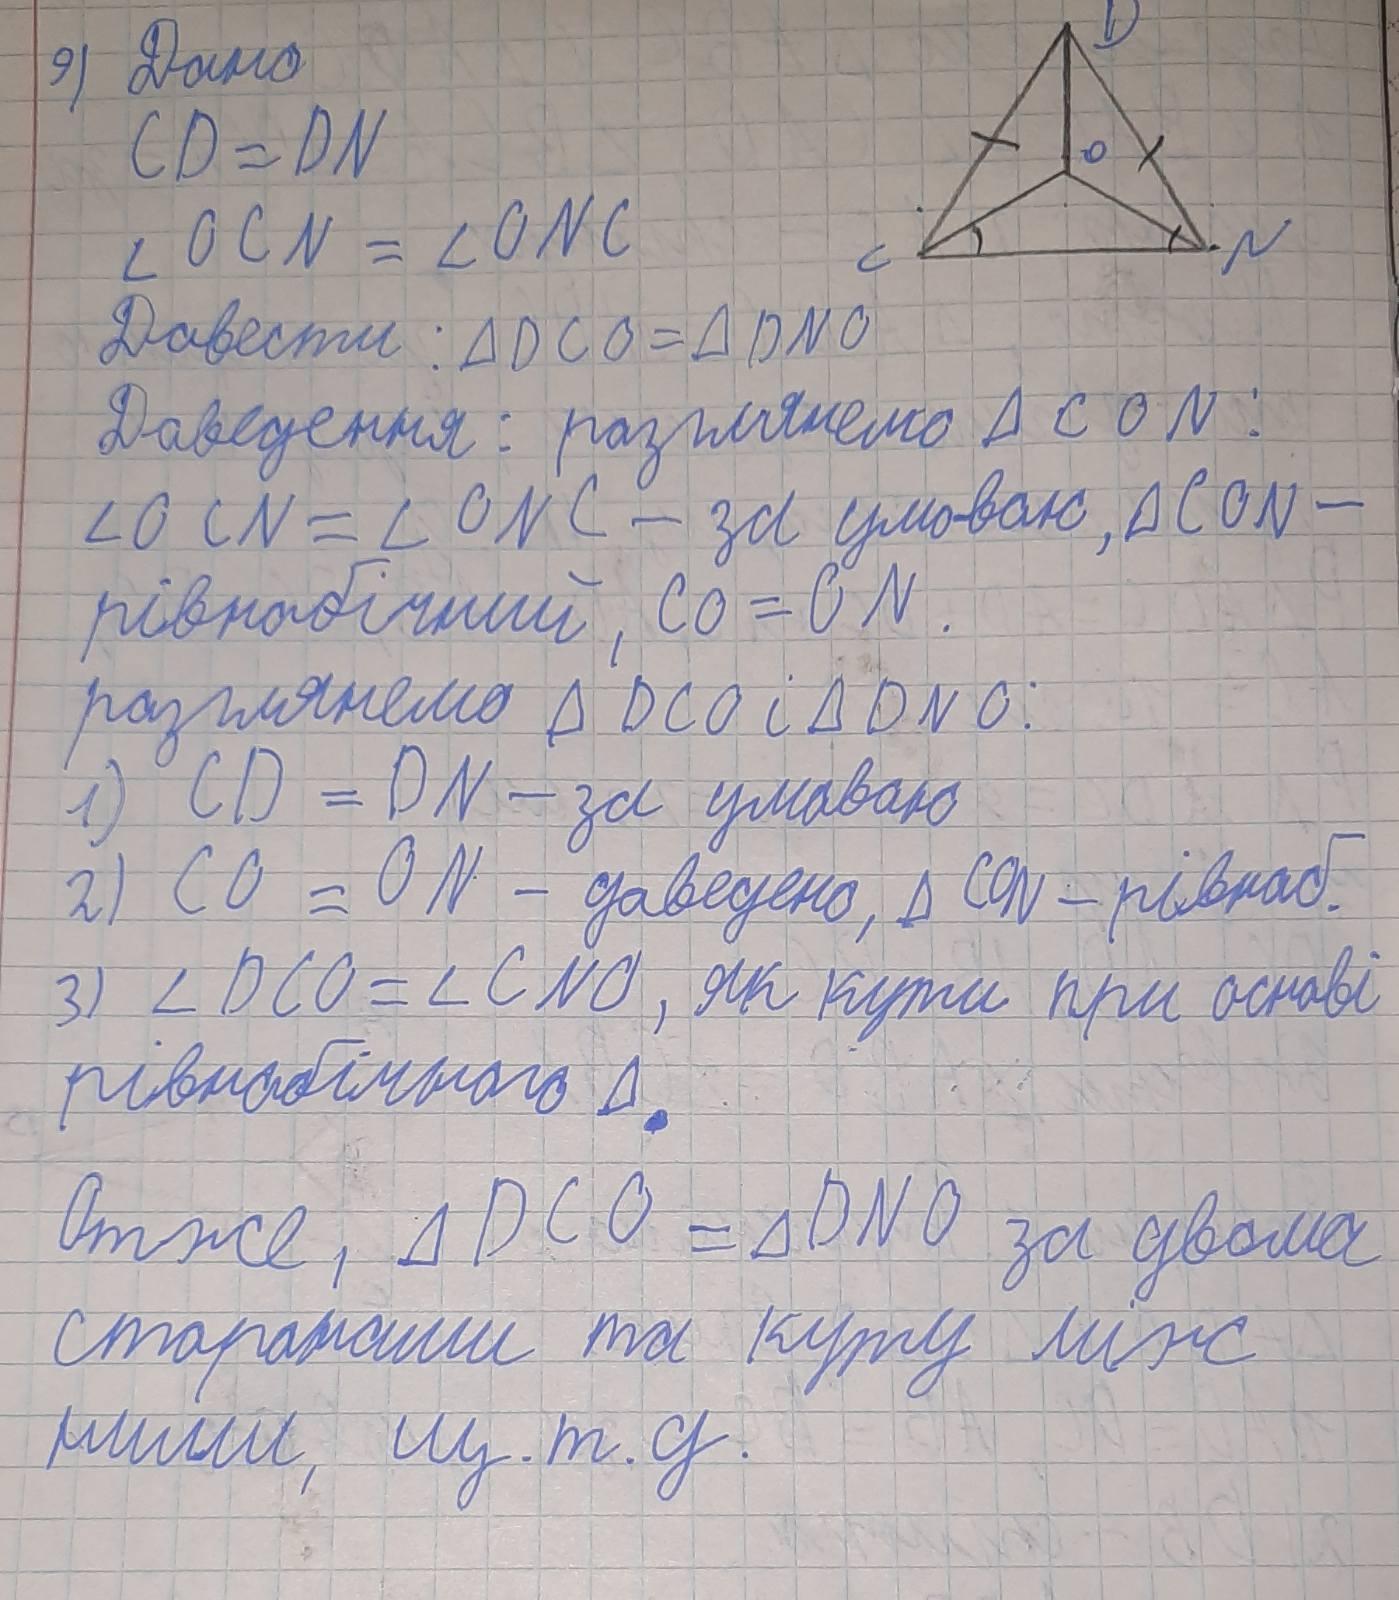 9) Дано
CD = DN
∠OCN = ∠ONC
Довести: ΔDCO = ΔDNO
Доведення: розглянемо ΔCON:
∠OCN = ∠ONC – за умовою, ΔCON –
рівнобічний, CO = ON.
розглянемо ΔDCO і ΔDNO:
1) CD = DN – за умовою
2) CO = ON – доведено, ΔCON – рівноб.
3) ∠DCO = ∠CNO, як кути при основі
рівнобічного Δ.
Отже, ΔDCO = ΔDNO за двома
сторонами та куту між
ними, щ.т.д.
D
O
C
N